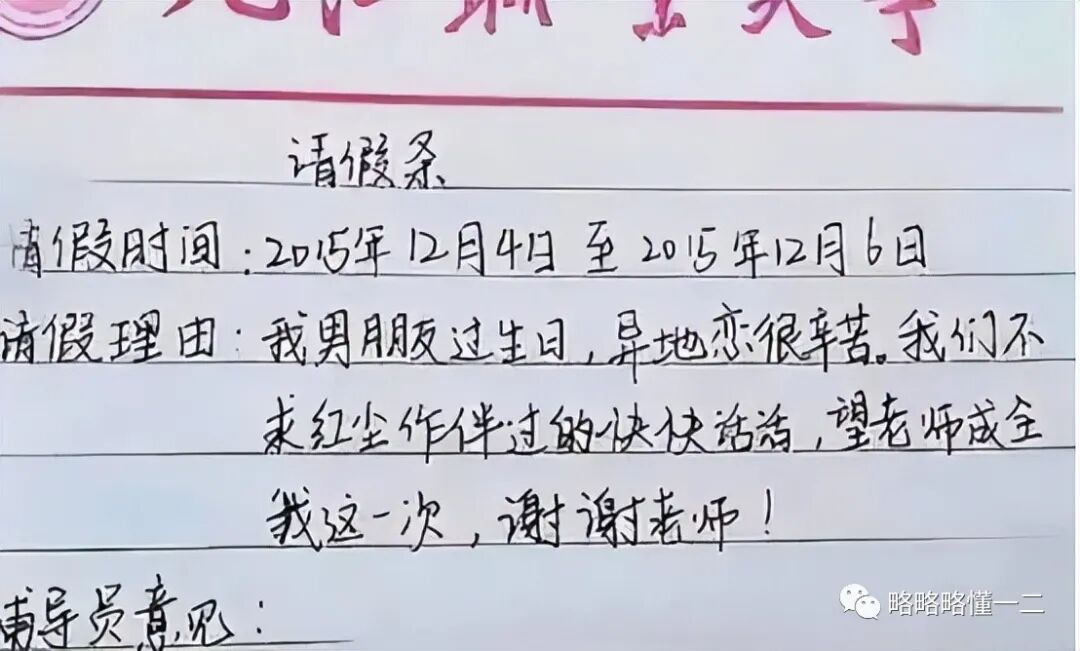 职业大学
请假条
请假时间：2015年12月4日至2015年12月6日
请假理由：我男朋友过生日，异地恋很辛苦。我们不
求红尘作伴过的快快活活，望老师成全
我这一次，谢谢老师！
辅导员意见：
略略略懂一二